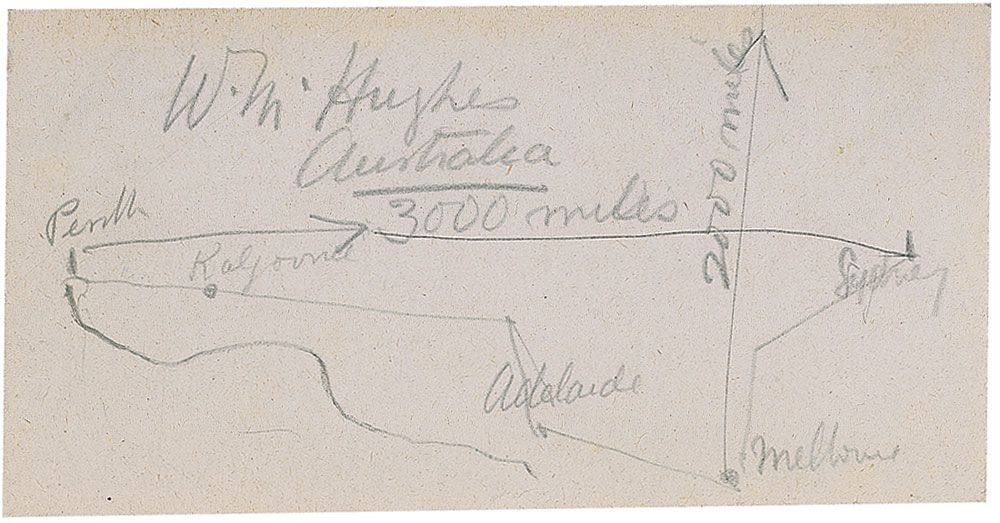 W. M. Hughes
Australia
3000 miles
2000 miles
Perth
Kalgoorie
Sydney
Adelaide
Melbourne